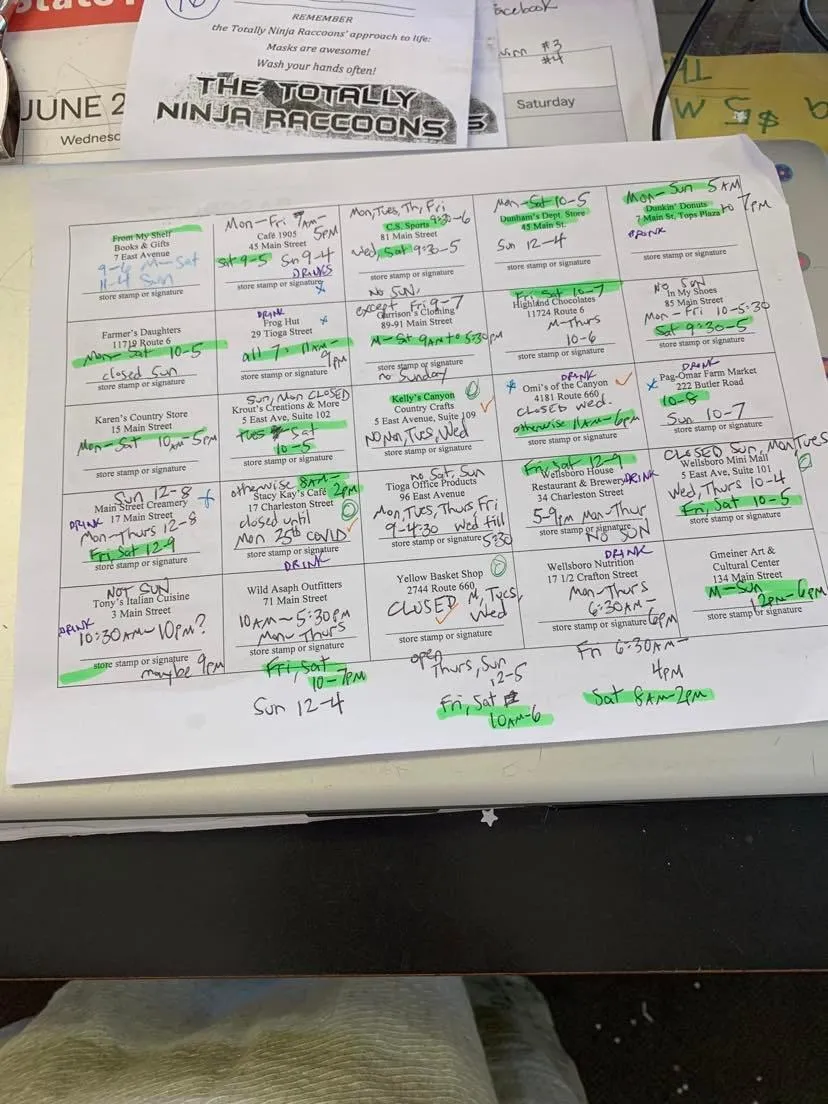 REMEMBER
the Totally Ninja Raccoons' approach to life:
Masks are awesome!
Wash your hands often!
THE TOTALLY
NINJA RACCOONS
S
JUNE 2
Wednesd
acebook
#3
#4
Saturday
From My Shelf
Books & Gifts
7 East Avenue
9-6 M-Sat
11-4 Sun
store stamp or signature
Mon-Fri 7AM-
5PM
Café 1905
45 Main Street
Sat 9-5 Sun 9-4
DRINKS
store stamp or signature
Mon, Tues, Th, Fri
C.S. Sports 9:30-6
81 Main Street
Wed, Sat 9:30-5
store stamp or signature
NO SUN,
Mon-Sat 10-5
Dunham's Dept. Store
45 Main St.
Sun 12-4
store stamp or signature
Mon-Sun 5AM
to 7PM
Dunkin' Donuts
7 Main St, Tops Plaza
DRINK
store stamp or signature
Farmer's Daughters
11719 Route 6
Mon-Sat 10-5
closed Sun
store stamp or signature
DRINK
Frog Hut
29 Tioga Street
all 7: 11AM-
9PM
store stamp or signature
except Fri 9-7
Garrison's Clothing
89-91 Main Street
M-Sat 9AM to 5:30PM
store stamp or signature
no Sunday
Fri, Sat 10-7
Highland Chocolates
11724 Route 6
M-Thurs
10-6
store stamp or signature
NO SUN
In My Shoes
85 Main Street
Mon-Fri 10-5:30
Sat 9:30-5
store stamp or signature
Karen's Country Store
15 Main Street
Mon-Sat 10AM-5PM
store stamp or signature
Sun, Mon CLOSED
Krout's Creations & More
5 East Ave, Suite 102
Tues-Sat
10-5
store stamp or signature
Kelly's Canyon
Country Crafts
5 East Avenue, Suite 109
NO Mon, Tues, Wed
store stamp or signature
DRINK
Omi's of the Canyon
4181 Route 660
CLOSED wed.
otherwise 11AM-6PM
store stamp or signature
DRINK
Pag-Omar Farm Market
222 Butler Road
10-8
Sun 10-7
store stamp or signature
Sun 12-8
Main Street Creamery
DRINK 17 Main Street
Mon-Thurs 12-8
Fri, Sat 12-9
store stamp or signature
otherwise 8AM-
2PM
Stacy Kay's Café
17 Charleston Street
closed until
Mon 25th COVID
store stamp or signature
DRINK
no Sat, Sun
Tioga Office Products
96 East Avenue
Mon, Tues, Thurs, Fri
9-4:30 Wed till
5:30
store stamp or signature
Fri, Sat 12-9
Wellsboro House
Restaurant & Brewery DRINK
34 Charleston Street
5-9PM Mon-Thur
store stamp or signature
NO SUN
CLOSED Sun, Mon, Tues
Wellsboro Mini Mall
5 East Ave, Suite 101
Wed, Thurs 10-4
Fri, Sat 10-5
store stamp or signature
NOT SUN
Tony's Italian Cuisine
3 Main Street
DRINK
10:30AM-10PM?
store stamp or signature
maybe 9PM
Wild Asaph Outfitters
71 Main Street
10AM-5:30PM
Mon-Thurs
store stamp or signature
Fri, Sat
10-7PM
Sun 12-4
Yellow Basket Shop
2744 Route 660
CLOSED M, Tues,
Wed
store stamp or signature
open
Thurs, Sun
12-5
Fri, Sat
10AM-6
DRINK
Wellsboro Nutrition
17 1/2 Crafton Street
Mon-Thurs
6:30AM-
6PM
store stamp or signature
Fri 6:30AM-
4PM
Sat 8AM-2PM
Gmeiner Art &
Cultural Center
134 Main Street
M-Sun
12PM-6PM
store stamp or signature